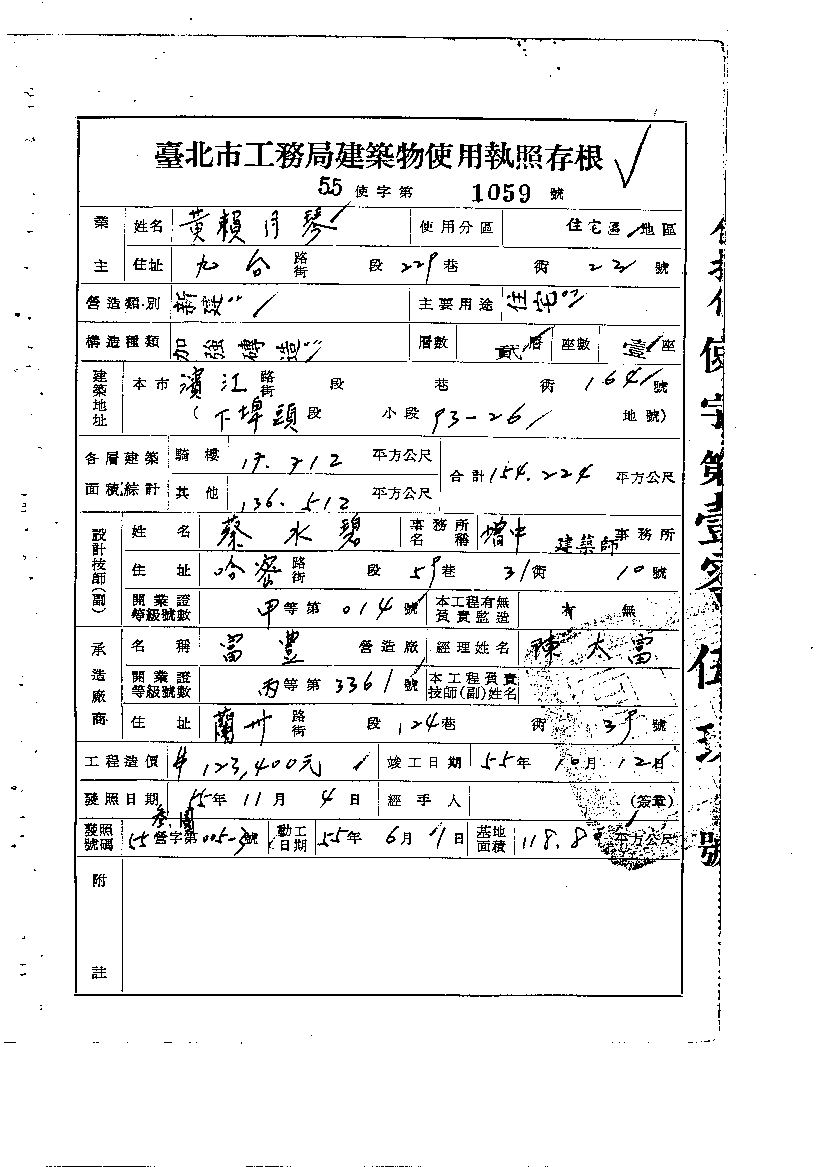 臺北市工務局建築物使用執照存根
55 使字第 1059 號
業主 姓名 黃賴月琴 使用分區 住宅區 地區
住址 九台 路街 段 229 巷 衖 23 號
營造類別 新建 主要用途 住宅
構造種類 加強磚造 層數 貳層 座數 壹座
建築地址 本市 濱江 路街 段 巷 衖 164 號
(下埤頭 段 小段 93-26 地號)
各層建築面積綜計 騎樓 17.712 平方公尺 合計 154.224 平方公尺
其他 136.512 平方公尺
設計技師(副) 姓名 蔡水碧 事務所名稱 增中 建築師 事務所
住址 哈密 路街 段 59 巷 31 衖 10 號
開業證等級號數 甲等第 014 號 本工程有無負責監造 有 無
承造廠商 名稱 富豐 營造廠 經理姓名 陳太富
開業證等級號數 丙等第 3361 號 本工程負責技師(副)姓名
住址 蘭州 路街 段 124 巷 衖 39 號
工程造價 $123,400元 竣工日期 55年10月12日
發照日期 55年11月4日 經手人 (簽章)
發照號碼 55營字第005-3號 動工日期 55年6月11日 基地面積 118.8 平方公尺
附註
使字第壹零伍玖號